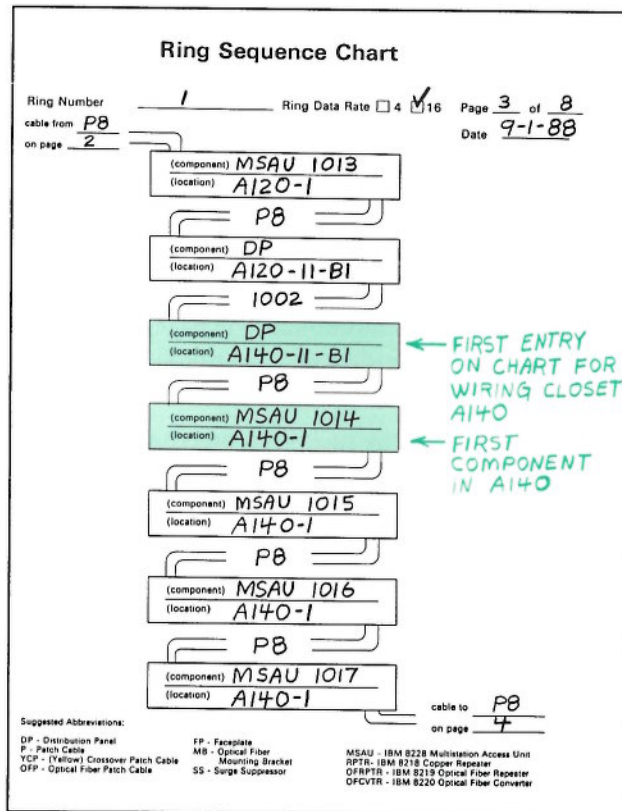 Ring Sequence Chart
Ring Number 1 Ring Data Rate 4 ✓16 Page 3 of 8
cable from P8
on page 2
Date 9-1-88
(component) MSAU 1013
(location) A120-1
P8
(component) DP
(location) A120-11-B1
1002
(component) DP
(location) A140-11-B1
FIRST ENTRY
ON CHART FOR
WIRING CLOSET
A140
P8
(component) MSAU 1014
(location) A140-1
FIRST
COMPONENT
IN A140
P8
(component) MSAU 1015
(location) A140-1
P8
(component) MSAU 1016
(location) A140-1
P8
(component) MSAU 1017
(location) A140-1
cable to P8
on page 4
Suggested Abbreviations:
DP - Distribution Panel
P - Patch Cable
YCP - (Yellow) Crossover Patch Cable
OFP - Optical Fiber Patch Cable
FP - Faceplate
MB - Optical Fiber
Mounting Bracket
SS - Surge Suppressor
MSAU - IBM 8228 Multistation Access Unit
RPTR- IBM 8218 Copper Repeater
OFRPTR - IBM 8219 Optical Fiber Repeater
OFCVTR - IBM 8220 Optical Fiber Converter